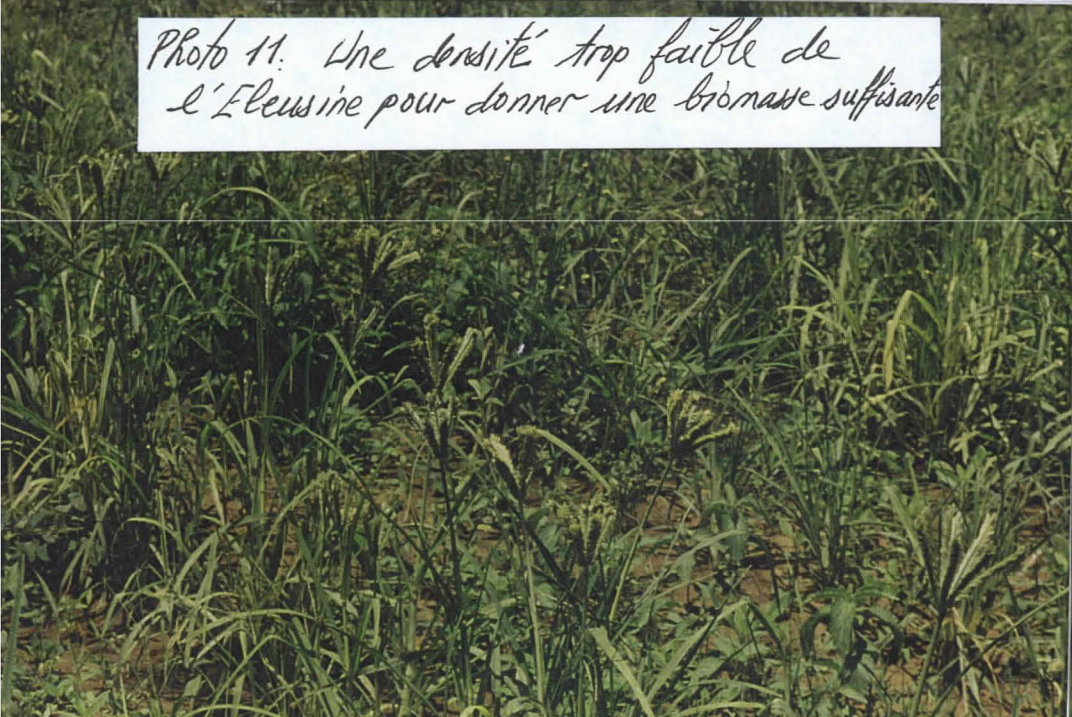 Photo 11: Une densité trop faible de
l'Eleusine pour donner une biomasse suffisante